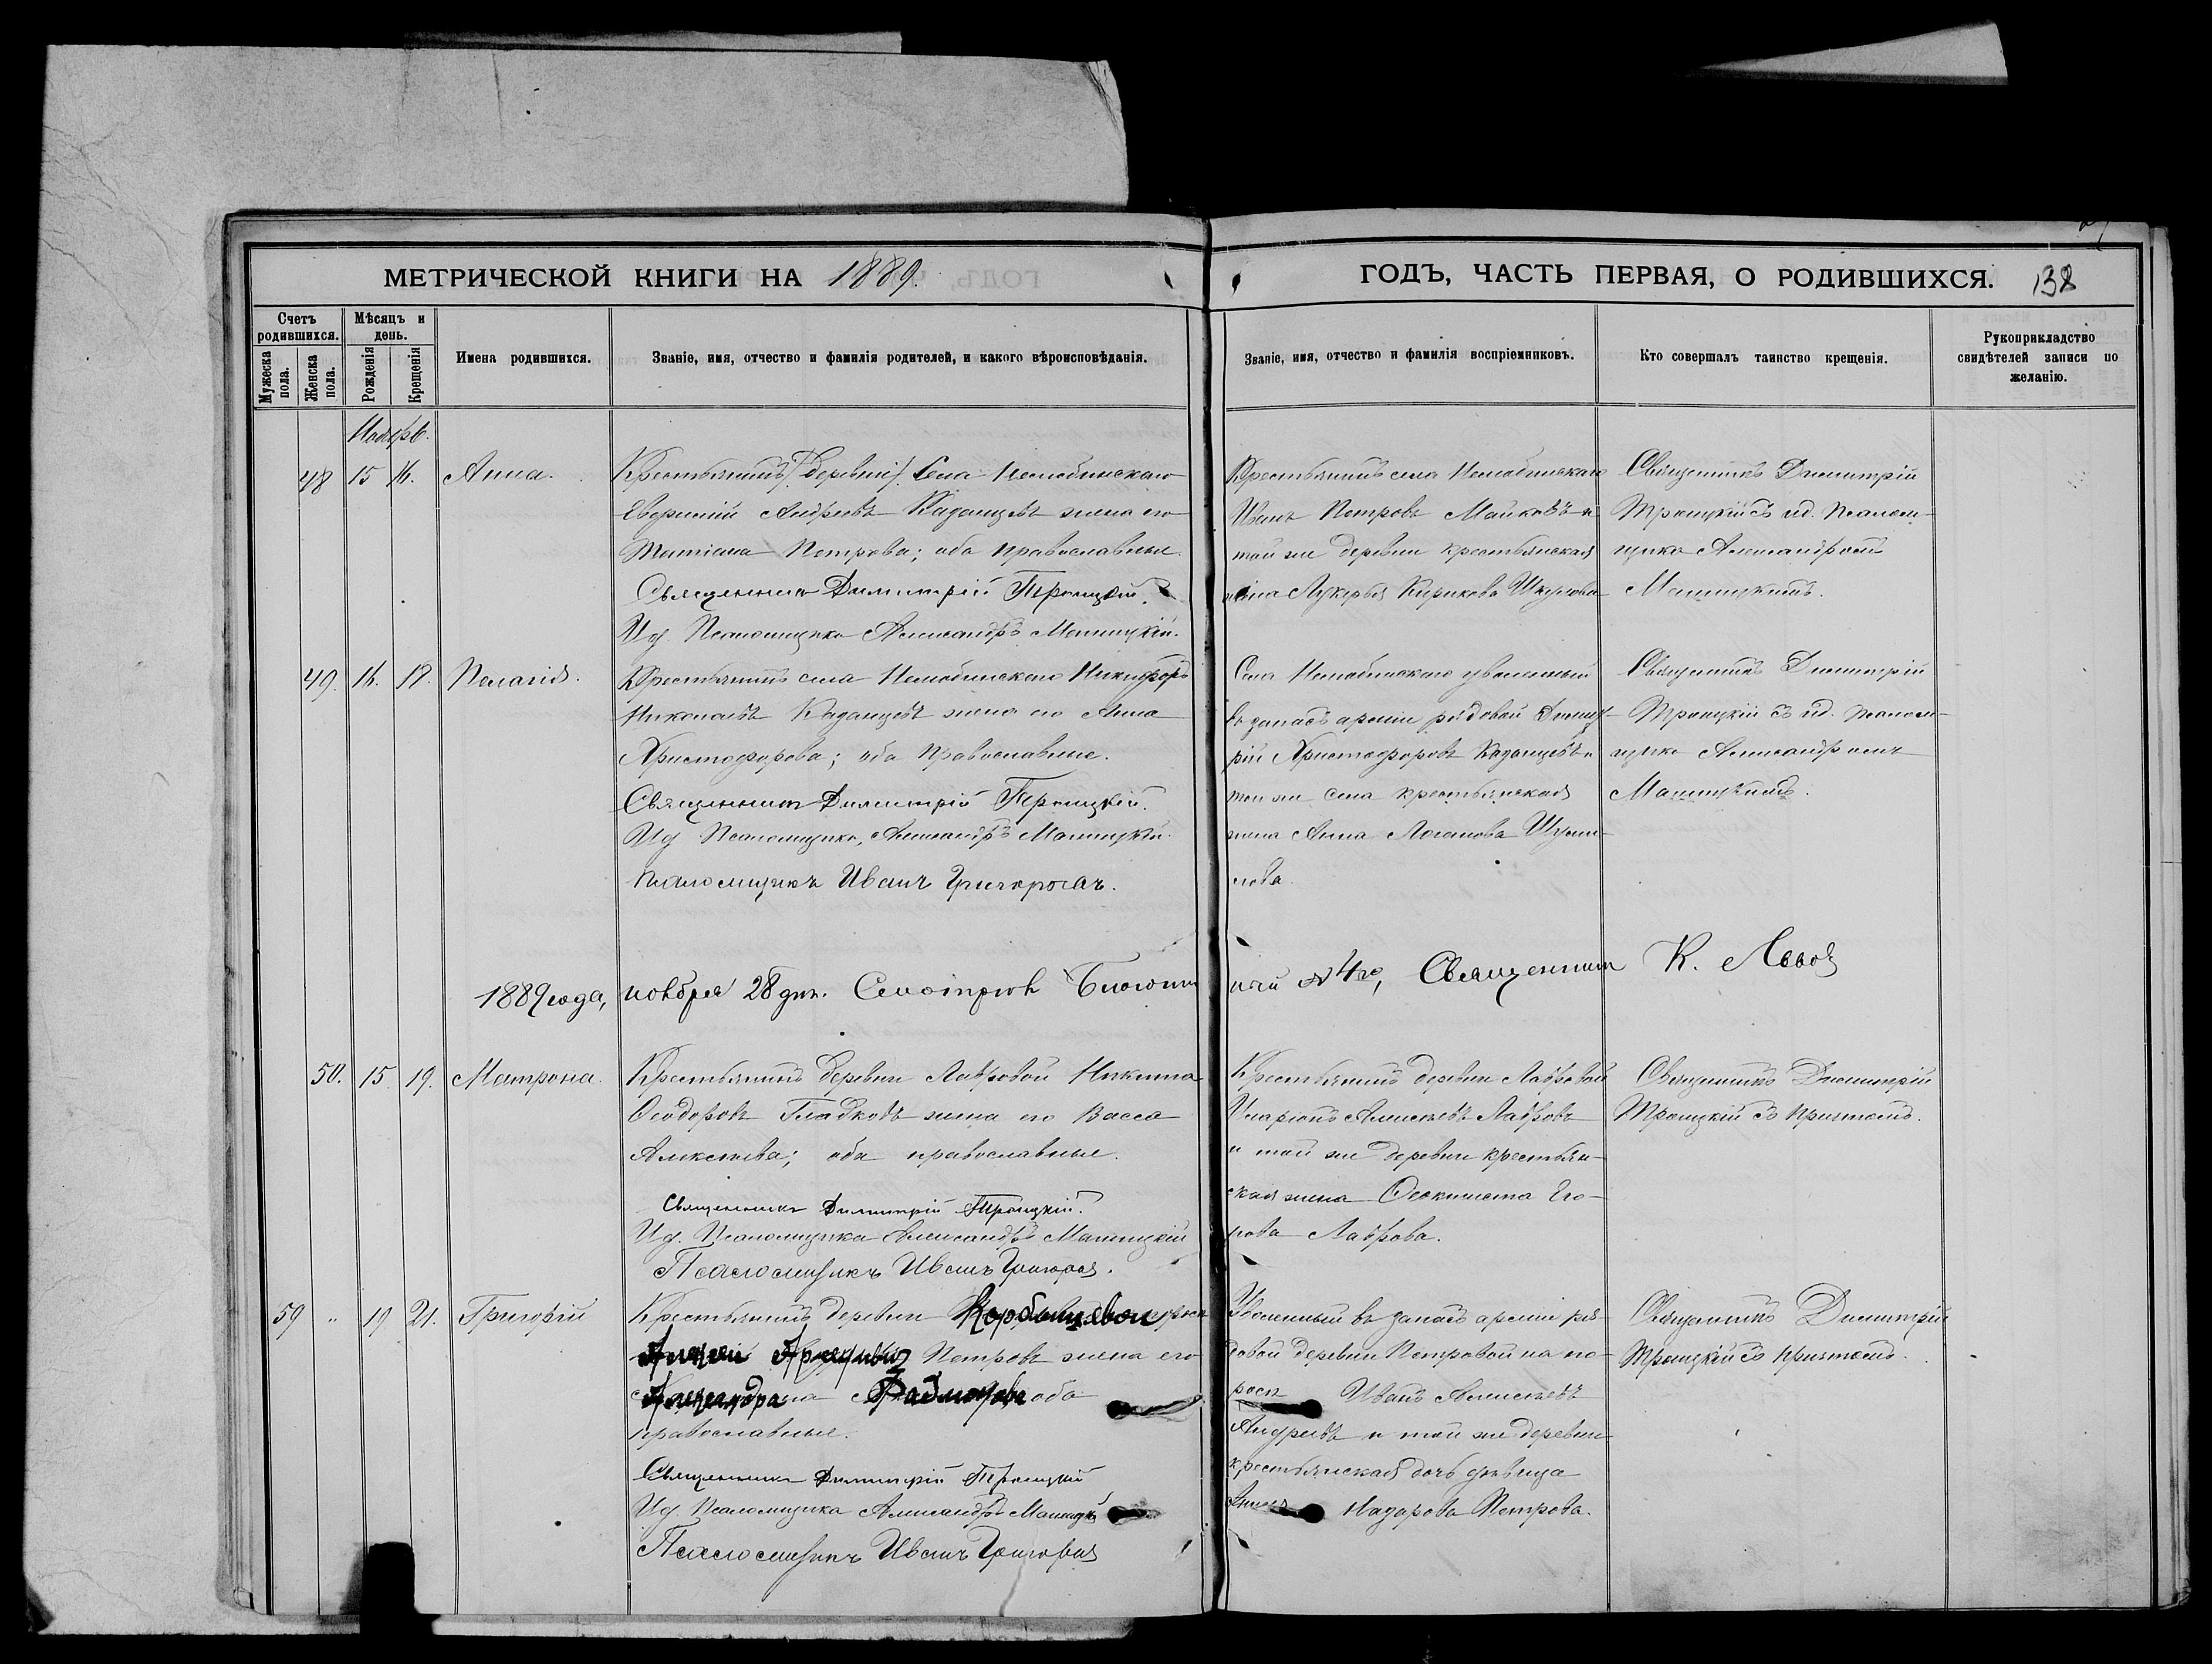 МЕТРИЧЕСКОЙ КНИГИ НА 1889.
ГОДЪ, ЧАСТЬ ПЕРВАЯ, О РОДИВШИХСЯ. 138
Счетъ родившихся.
Мужеска пола.
Женска пола.
Мѣсяцъ и день.
Рожденія
Крещенія
Имена родившихся.
Званіе, имя, отчество и фамилія родителей, и какого вѣроисповѣданія.
Званіе, имя, отчество и фамилія воспріемниковъ.
Кто совершалъ таинство крещенія.
Рукоприкладство свидѣтелей записи по желанію.
Ноябрь.
48 15 16. Анна.
Крестьянинъ /деревни/. Села
Андреевъ Казанцевъ жена его
Татіана Петрова; оба православные.
Священникъ Димитрій Троицкій
Ид. Псаломщика Александръ
Крестьянинъ села
Иванъ Петровъ и
той же деревни крестьянская
жена Лукерья
Священникъ Димитрій
Троицкій съ ид. псалом-
щика Александромъ
49. 16. 18. Пелагія.
Крестьянинъ села Никифоръ
Николаевъ Казанцевъ жена его Анна
Христофорова; оба православные.
Священникъ Димитрій Троицкій.
Ид. Псаломщика, Александръ
Псаломщикъ Иванъ
Села уволенный
въ запасъ арміи рядовой Димит-
рій Христофоровъ Казанцевъ и
той же села крестьянская
жена Анна
лова.
Священникъ Димитрій
Троицкій съ ид. псалом-
щика Александромъ
1889 года, ноября 28 дня. Смотрѣлъ Благочин
ный № 4го, Священникъ К.
50. 15. 19. Матрона.
Крестьянинъ деревни Лавровой Никита
Ѳеодоровъ Гладковъ жена его Васса
Алексѣева; оба православные.
Священникъ Димитрій Троицкій.
Ид. Псаломщика Александръ
Псаломщикъ Иванъ
Крестьянинъ деревни Лавровой
Иларіонъ Алексѣевъ Лавровъ
и той же деревни крестьян-
ская жена Ѳеоктиста Его-
рова Лаврова.
Священникъ Димитрій
Троицкій съ причтомъ.
59 „ 19 21. Григорій
Крестьянинъ деревни
Петровъ жена его
Александра оба
православные.
Священникъ Димитрій Троицкій
Ид. Псаломщика Александръ
Псаломщикъ Иванъ
Уволенный въ запасъ арміи ря-
довой деревни Петровой на по-
росл Иванъ Алексѣевъ
Андреевъ и той же деревни
крестьянская дочь дѣвица
Назарова Петрова.
Священникъ Димитрій
Троицкій съ причтомъ.